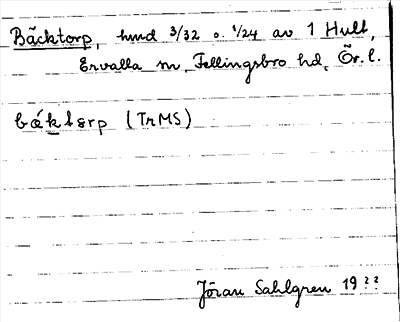 Bäcktorp, hmd 3/32 o. 1/24 av 1 Hult,
Ervalla sn, Fellingsbro hd, Ör. l.
bǽktɔrp (TrMS)
Jöran Sahlgren 19??